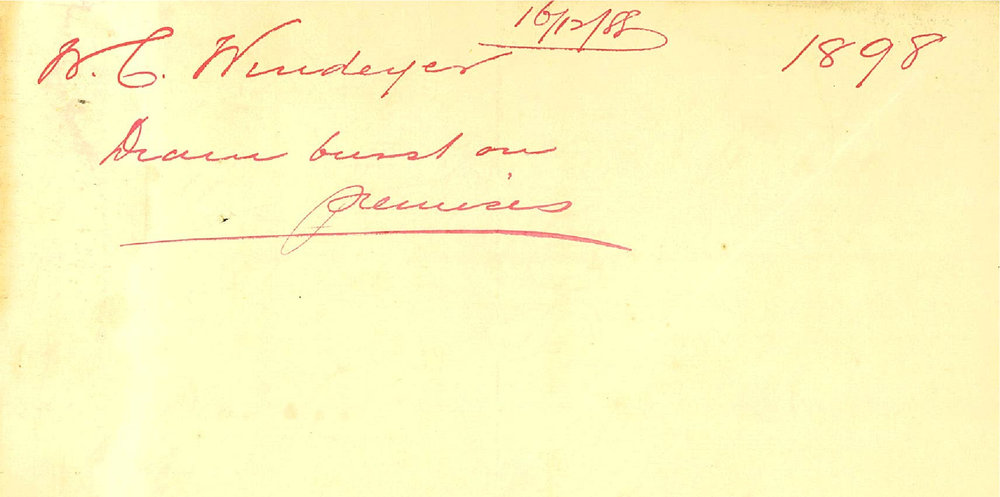 16/12/88
W. C. Windeyer 1898
Drain burst on
premises